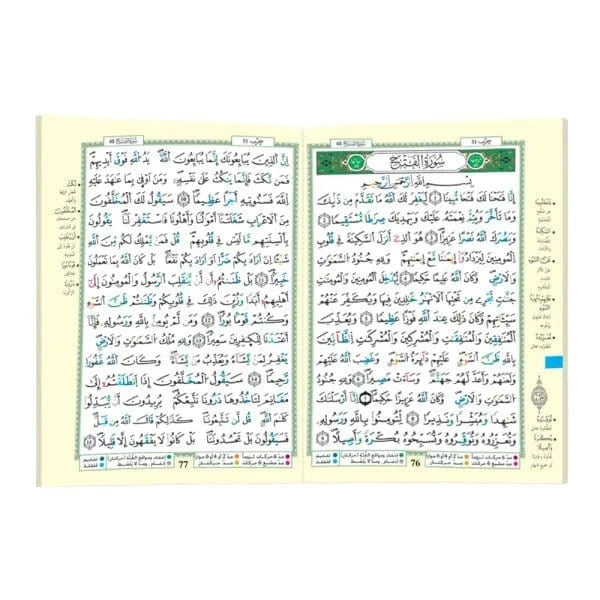 حِزْب 51
سُورَةُ الفَتْح 48
سُورَةُ الْفَتْحِ
بِسْمِ اللَّهِ الرَّحْمَٰنِ الرَّحِيمِ
إِنَّا فَتَحْنَا لَكَ فَتْحًا مُبِينًا ۝١ لِيَغْفِرَ لَكَ اللَّهُ مَا تَقَدَّمَ مِنْ ذَنْبِكَ
وَمَا تَأَخَّرَ وَيُتِمَّ نِعْمَتَهُ عَلَيْكَ وَيَهْدِيَكَ صِرَاطًا مُسْتَقِيمًا ۝٢
وَيَنْصُرَكَ اللَّهُ نَصْرًا عَزِيزًا ۝٣ هُوَ الَّذِي أَنْزَلَ السَّكِينَةَ فِي قُلُوبِ
الْمُؤْمِنِينَ لِيَزْدَادُوا إِيمَانًا مَعَ إِيمَانِهِمْ وَلِلَّهِ جُنُودُ السَّمَٰوَٰتِ
وَالْأَرْضِ وَكَانَ اللَّهُ عَلِيمًا حَكِيمًا ۝٤ لِيُدْخِلَ الْمُؤْمِنِينَ وَالْمُؤْمِنَٰتِ
جَنَّٰتٍ تَجْرِي مِنْ تَحْتِهَا الْأَنْهَٰرُ خَٰلِدِينَ فِيهَا وَيُكَفِّرَ عَنْهُمْ
سَيِّـَٔاتِهِمْ وَكَانَ ذَٰلِكَ عِنْدَ اللَّهِ فَوْزًا عَظِيمًا ۝٥ وَيُعَذِّبَ
الْمُنَٰفِقِينَ وَالْمُنَٰفِقَٰتِ وَالْمُشْرِكِينَ وَالْمُشْرِكَٰتِ الظَّانِّينَ
بِاللَّهِ ظَنَّ السَّوْءِ عَلَيْهِمْ دَائِرَةُ السَّوْءِ وَغَضِبَ اللَّهُ عَلَيْهِمْ
وَلَعَنَهُمْ وَأَعَدَّ لَهُمْ جَهَنَّمَ وَسَاءَتْ مَصِيرًا ۝٦ وَلِلَّهِ جُنُودُ
السَّمَٰوَٰتِ وَالْأَرْضِ وَكَانَ اللَّهُ عَزِيزًا حَكِيمًا ۝٧ إِنَّا أَرْسَلْنَٰكَ
شَٰهِدًا وَمُبَشِّرًا وَنَذِيرًا ۝٨ لِتُؤْمِنُوا بِاللَّهِ وَرَسُولِهِ
وَتُعَزِّرُوهُ وَتُوَقِّرُوهُ وَتُسَبِّحُوهُ بُكْرَةً وَأَصِيلًا ۝٩
76
حِزْب 51
سُورَةُ الفَتْح 48
إِنَّ الَّذِينَ يُبَايِعُونَكَ إِنَّمَا يُبَايِعُونَ اللَّهَ يَدُ اللَّهِ فَوْقَ أَيْدِيهِمْ
فَمَنْ نَكَثَ فَإِنَّمَا يَنْكُثُ عَلَىٰ نَفْسِهِ وَمَنْ أَوْفَىٰ بِمَا عَٰهَدَ عَلَيْهُ
اللَّهَ فَسَيُؤْتِيهِ أَجْرًا عَظِيمًا ۝١٠ سَيَقُولُ لَكَ الْمُخَلَّفُونَ
مِنَ الْأَعْرَابِ شَغَلَتْنَا أَمْوَٰلُنَا وَأَهْلُونَا فَاسْتَغْفِرْ لَنَا يَقُولُونَ
بِأَلْسِنَتِهِمْ مَا لَيْسَ فِي قُلُوبِهِمْ قُلْ فَمَنْ يَمْلِكُ لَكُمْ مِنَ اللَّهِ
شَيْـًٔا إِنْ أَرَادَ بِكُمْ ضَرًّا أَوْ أَرَادَ بِكُمْ نَفْعًا بَلْ كَانَ اللَّهُ بِمَا تَعْمَلُونَ
خَبِيرًا ۝١١ بَلْ ظَنَنْتُمْ أَنْ لَنْ يَنْقَلِبَ الرَّسُولُ وَالْمُؤْمِنُونَ إِلَىٰ
أَهْلِيهِمْ أَبَدًا وَزُيِّنَ ذَٰلِكَ فِي قُلُوبِكُمْ وَظَنَنْتُمْ ظَنَّ السَّوْءِ
وَكُنْتُمْ قَوْمًا بُورًا ۝١٢ وَمَنْ لَمْ يُؤْمِنْ بِاللَّهِ وَرَسُولِهِ فَإِنَّا
أَعْتَدْنَا لِلْكَٰفِرِينَ سَعِيرًا ۝١٣ وَلِلَّهِ مُلْكُ السَّمَٰوَٰتِ وَالْأَرْضِ
يَغْفِرُ لِمَنْ يَشَاءُ وَيُعَذِّبُ مَنْ يَشَاءُ وَكَانَ اللَّهُ غَفُورًا
رَحِيمًا ۝١٤ سَيَقُولُ الْمُخَلَّفُونَ إِذَا انْطَلَقْتُمْ إِلَىٰ
مَغَانِمَ لِتَأْخُذُوهَا ذَرُونَا نَتَّبِعْكُمْ يُرِيدُونَ أَنْ يُبَدِّلُوا
كَلَٰمَ اللَّهِ قُلْ لَنْ تَتَّبِعُونَا كَذَٰلِكُمْ قَالَ اللَّهُ مِنْ قَبْلُ
فَسَيَقُولُونَ بَلْ تَحْسُدُونَنَا بَلْ كَانُوا لَا يَفْقَهُونَ إِلَّا قَلِيلًا ۝١٥
77